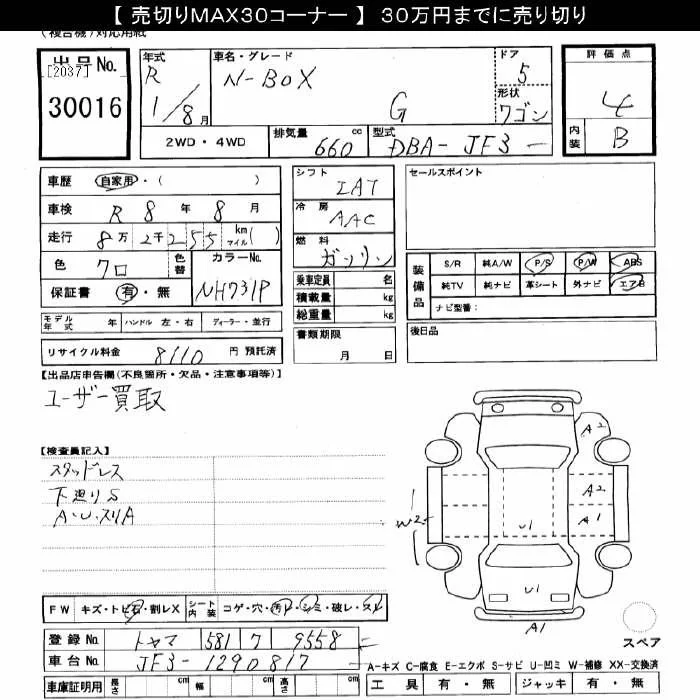 【 売切りMAX30コーナー 】 30万円までに売り切り
(複合機)対応用紙
出品No. [2037] 30016
年式 R 1/8月
車名・グレード N-BOX G
ドア 5
形状 ワゴン
評価点 4
内装 B
2WD・4WD 排気量 660 cc 型式 DBA- JF3 -
車歴 自家用・( )
車検 R 8 年 8 月
走行 8万 2千 255 km マイル( )
色 クロ 色替 カラーNo. NH731P
保証書 有・無
シフト IAT
冷房 AAC
燃料 ガソリン
乗車定員 名
積載量 kg
総重量 kg
書類期限 月 日
セールスポイント
装備品 S/R 純A/W P/S P/W ABS
純TV 純ナビ 革シート 外ナビ エアB
ナビ型番:
後日品
モデル年式 年 ハンドル 左・右 ディーラー・並行
リサイクル料金 8110 円 預託済
【出品店申告欄(不良箇所・欠品・注意事項等)】
ユーザー買取
【検査員記入】
スタッドレス
下廻りS
A・U・スリA
A2
A2
A1
W2
U1
U1
A1
スペア
FW キズ・トビ石・割レX シート内装 コゲ・穴・汚レ・シミ・破レ・スレ
登録No. トヤマ 581 ワ 9558
車台No. JF3-1290817
A-キズ C-腐食 E-エクボ S-サビ U-凹ミ W-補修 XX-交換済
車庫証明用 長さ cm 幅 cm 高さ cm
工具 有・無 ジャッキ 有・無